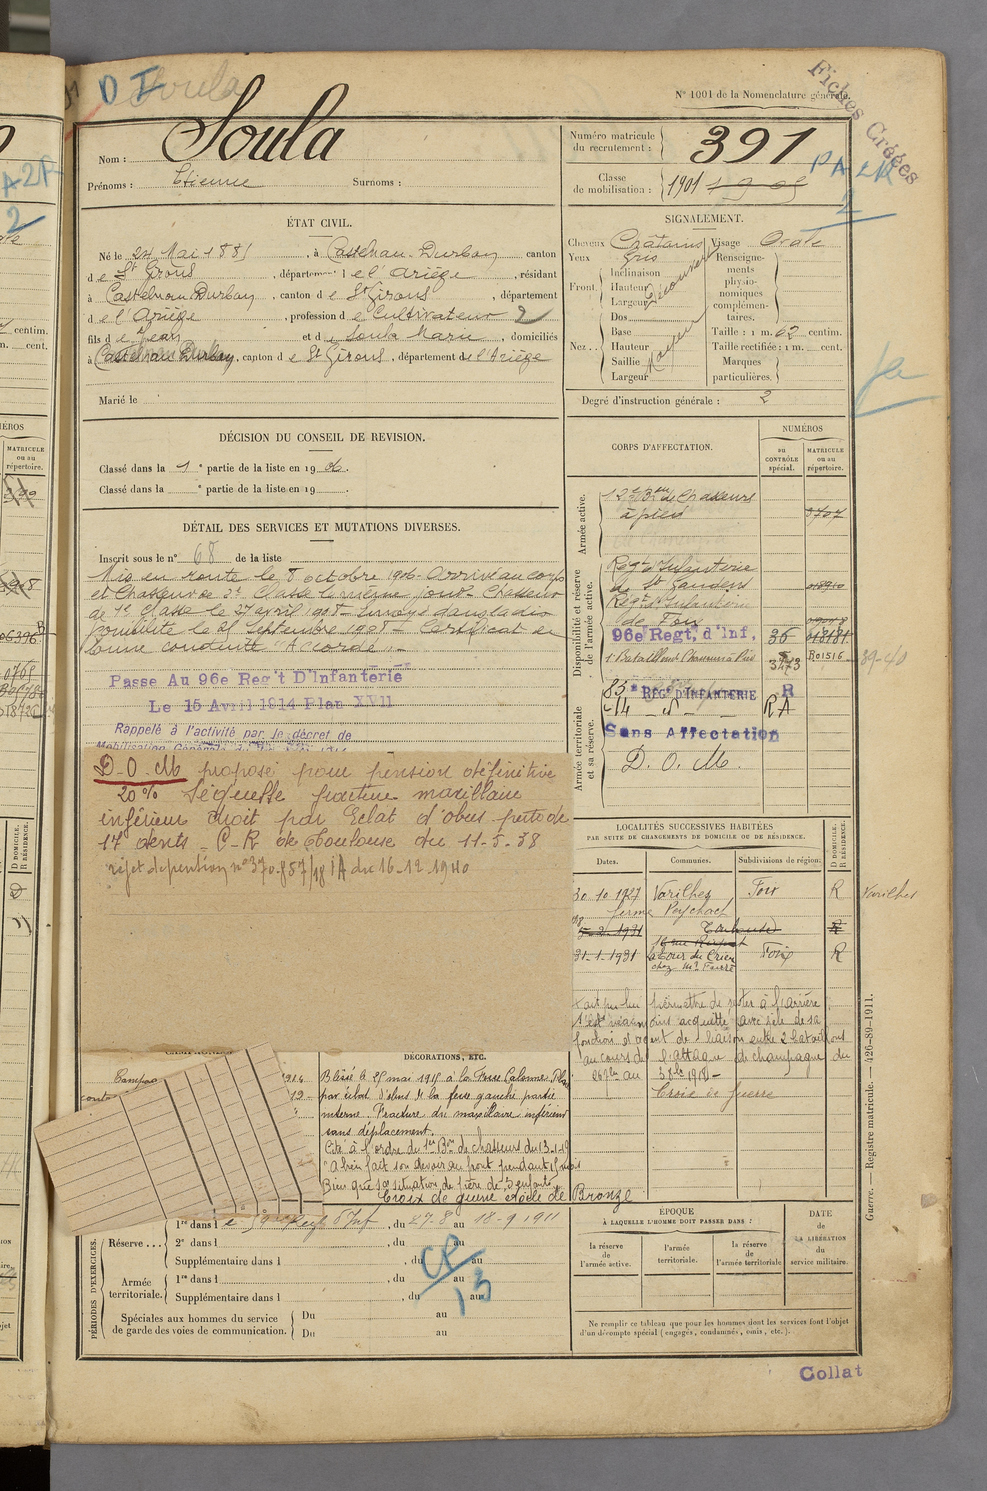 D I Soula
N° 1001 de la Nomenclature générale.
Fiches Créées
Nom : Soula
Prénoms : Etienne Surnoms :
Numéro matricule du recrutement : 391
PA 2R
2
Classe de mobilisation : 1901 1905
ÉTAT CIVIL.
Né le 24 Mai 1881, à Castelnau-Durban canton
de St Girons, département de l'Ariège, résidant
à Castelnau-Durban, canton de St Girons, département
de l'Ariège, profession de Cultivateur 2
fils de Jean et de Soula Marie, domiciliés
à Castelnau Durban, canton de St Girons, département de l'Ariège
Marié le
SIGNALEMENT.
Cheveux Châtains Visage Ovale
Yeux Gris
Front. Inclinaison
Hauteur
Largeur
Découvert
Nez. Dos
Base
Hauteur
Saillie
Largeur
Moyen
Renseignements physionomiques complémentaires.
Taille : 1 m. 62 centim.
Taille rectifiée : 1 m. cent.
Marques particulières.
Degré d'instruction générale : 2
DÉCISION DU CONSEIL DE REVISION.
Classé dans la 1e partie de la liste en 1906.
Classé dans la e partie de la liste en 19
DÉTAIL DES SERVICES ET MUTATIONS DIVERSES.
Inscrit sous le n° 68 de la liste
Mis en route le 8 octobre 1906. Arrivé au corps
et Chasseur de 2e Classe le même jour. Chasseur
de 1e Classe le 27 avril 1908. Envoyé dans la dis
ponibilité le 25 Septembre 1908. Certificat de
bonne conduite "Accordé".
Passe Au 96e Reg't D'Infanterie
Le 15 Avril 1914 Plan XVII
Rappelé à l'activité par le décret de
D.O.M proposé pour pension définitive
20% Séquelle fracture maxillaire
inférieur droit par Eclat d'obus perte de
17 dents. C-R de Toulouse du 11-5-38
rejet de pension n° 370.857/18 IA du 16-12-1940
CORPS D'AFFECTATION.
NUMÉROS
au CONTRÔLE spécial.
MATRICULE ou au répertoire.
Armée active.
12e Bon de Chasseurs
à pied 3707
Disponibilité et réserve de l'armée active.
Regt d'Infanterie
de St Gaudens
Regt d'Infanterie
de Foix
96e Regt. d'Inf. 36
1 Bataillon de Chasseurs à Pied 3473 R01516 39-40
Armée territoriale et sa réserve.
83e REGt D'INFANTERIE R
RA
Sans Affectation
D.O.M.
LOCALITÉS SUCCESSIVES HABITÉES
PAR SUITE DE CHANGEMENTS DE DOMICILE OU DE RÉSIDENCE.
Dates. Communes. Subdivisions de région.
D DOMICILE, R RÉSIDENCE.
30 10 1927 Varilhes Foix R Varilhes
ferme Peychach
5-2-1931 Toulouse R
31-1-1931 La Tour du Crieu Foix R
chez Mr Faure
permettre de rester à l'arrière
s'est acquitté avec zèle de sa
fonction d'agent de liaison entre 2 bataillons
au cours de l'attaque de champagne du
Croix de guerre
DÉCORATIONS, ETC.
Blessé le 25 mai 1915 à la Fosse Calonne
par éclat d'obus à la fesse gauche partie
interne. Fracture du maxillaire inférieur
sans déplacement.
Cité à l'ordre du 1er Bon de chasseurs du 13-1-19
"A bien fait son devoir au front pendant 15 mois
Bien que sa situation de père de 3 enfants
Croix de guerre étoile de Bronze
PÉRIODES D'EXERCICES.
Réserve
1re dans le, du 27-8 au 18-9 1911
2e dans l, du au
Supplémentaire dans l, du au
Armée territoriale.
1re dans l, du au
Supplémentaire dans l, du au
CR
13
Spéciales aux hommes du service de garde des voies de communication.
Du au
Du au
ÉPOQUE
À LAQUELLE L'HOMME DOIT PASSER DANS :
la réserve de l'armée active.
l'armée territoriale.
la réserve de l'armée territoriale
DATE de LA LIBÉRATION du service militaire.
Ne remplir ce tableau que pour les hommes dont les services font l'objet
d'un décompte spécial (engagés, condamnés, omis, etc.).
Guerre. — Registre matricule. — 426-89-1911.
Collat